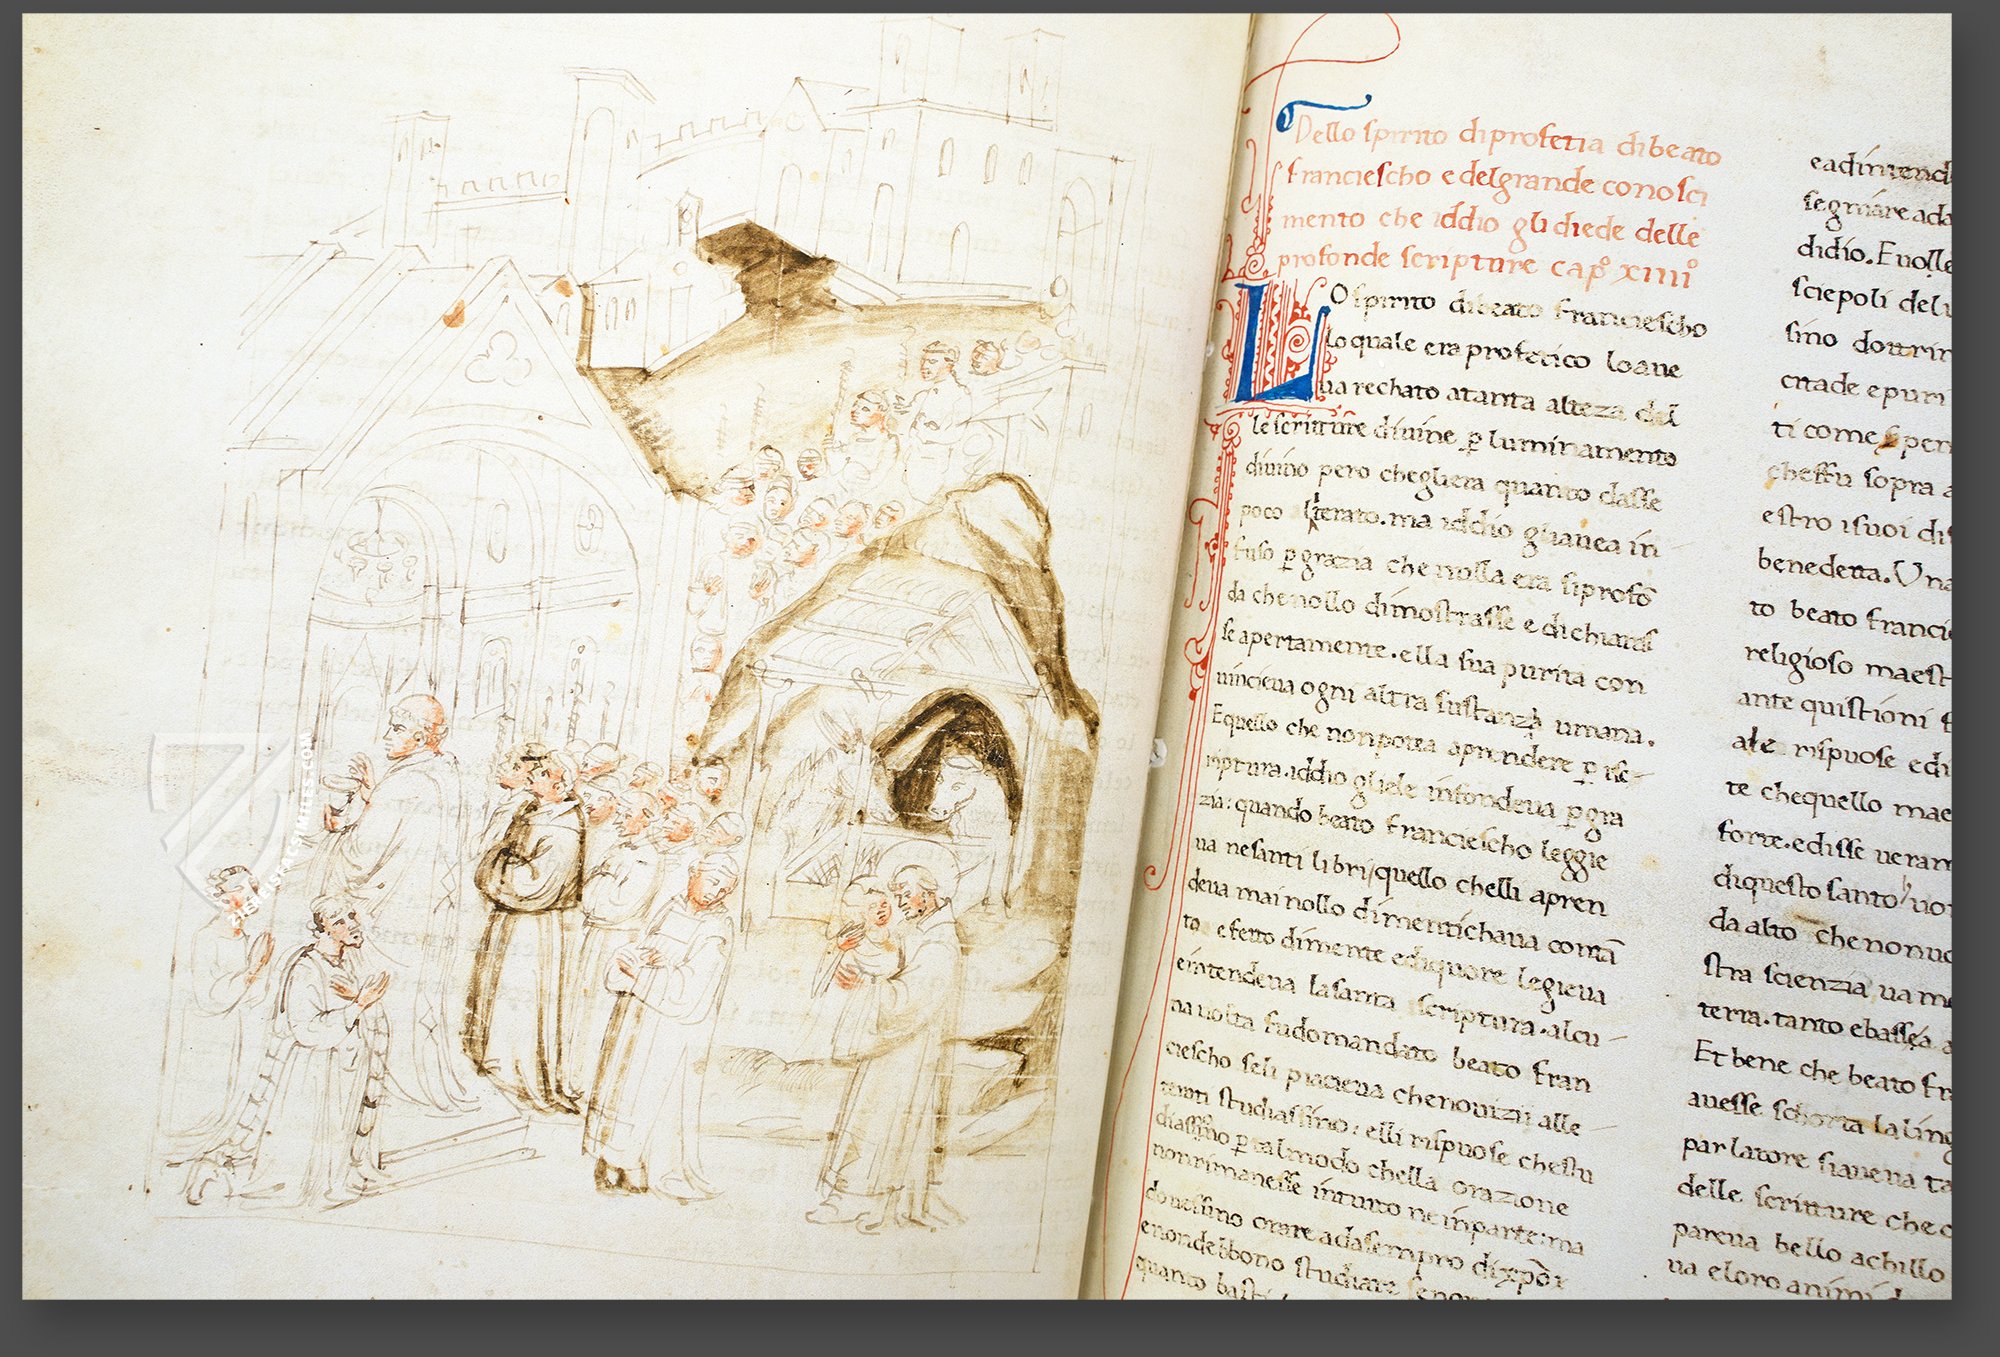 Dello spirito di profetia di beato
franciescho e del grande conosci
mento che iddio gli diede delle
profonde scripture capº xiiiiº
LO spirito di beato franciescho
lo quale era profetico lo aue
ua rechato a tanta alteza del
le scritture diuine ꝑ luminamento
diuino pero chegliera quanto dasse
poco literato. ma iddio gli auea in
fuso ꝑ grazia che nolla era si profō
da che nollo dimostrasse e dichiaras
se apertamente. ella sua purita con
uincieua ogni altra sustanza umana.
Equello che non potea aprendere ꝑ is
criptura. iddio gliele infondeua ꝑ gra
zia: quando beato franciescho leggie
ua ne santi libri/ quello chelli apren
deua mai nollo dimentichaua contā
to efetto dimente ediquore legieua
e intendeua la santa scriptura. alcu
na uolta fu domandato beato fran
ciescho seli piacieua che nouizii alle
studiassino: elli rispuose che stu
diassino ꝑ tal modo chella orazione
non rimanesse in tutto ne in parte: ma
douessino orare
e non debbono studiare
quanto
eadintend
segniare ada
didio. E uolle
sciepoli del
sino dottrin
citade e puri
ti come
cheffu sopra a
estro i suoi di
benedetta. Una
to beato franci
religioso maest
ante quistioni
ale rispuose e di
te che quello mae
forte. edisse ueram
di questo santo uo
da alto che non uo
stra scienzia ua me
terra. tanto e bassa
Et bene che beato fr
auesse schorta la ling
parlatore si auena ta
delle scritture che
pareua bello achillo
ua e loro animi
ZIEREIS FACSIMILES.COM